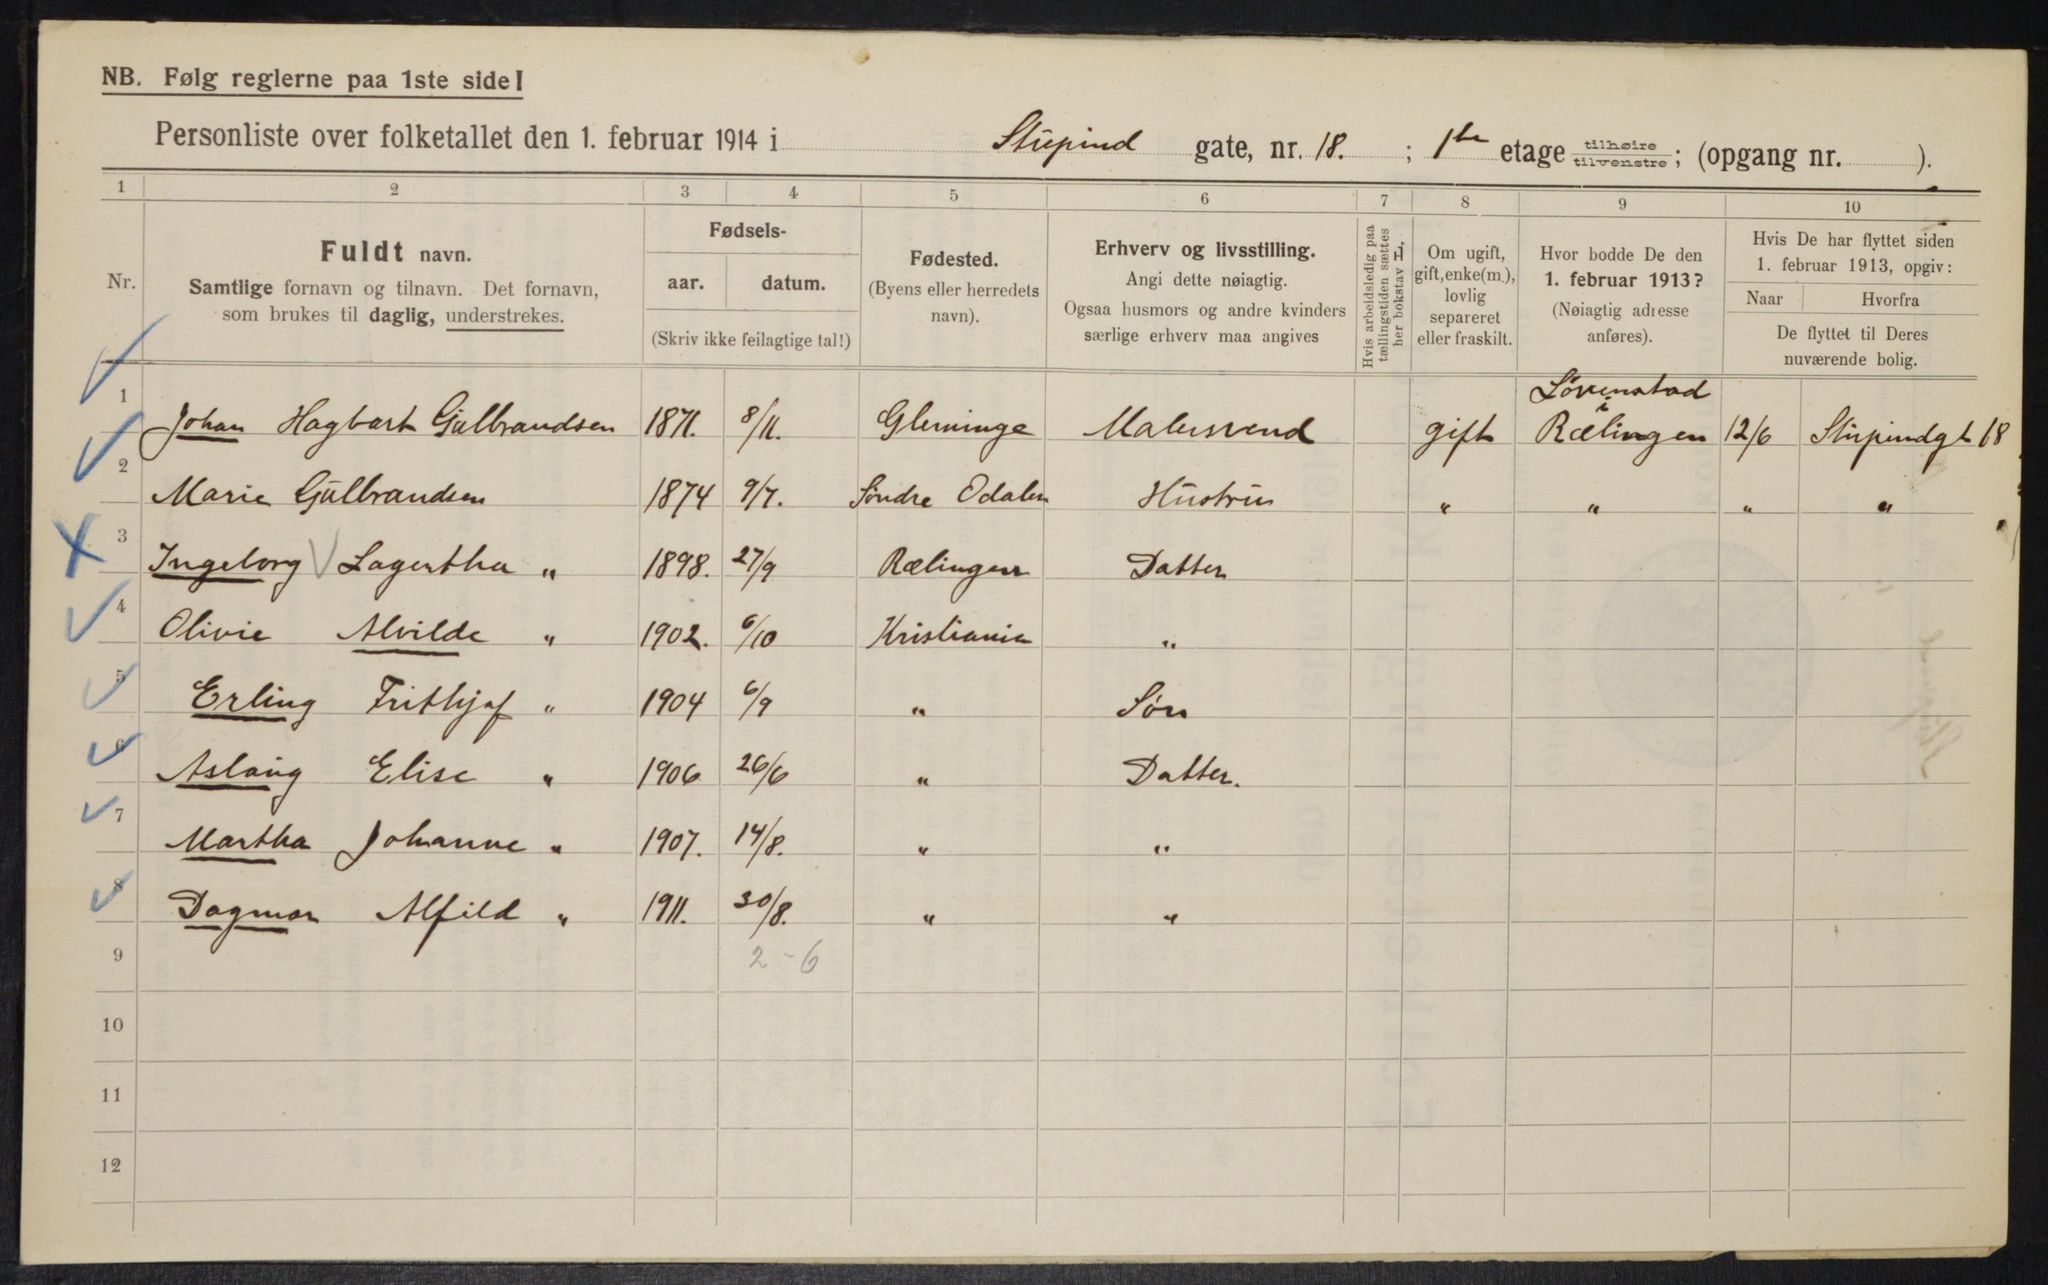 NB. Følg reglerne paa 1ste side!
Personliste over folketallet den 1. februar 1914 i Stupind gate, nr. 18. ; 1ste etage tilhøire tilvenstre; (opgang nr. ).
1 2 3 4 5 6 7 8 9 10
Nr.
Fuldt navn.
Samtlige fornavn og tilnavn. Det fornavn,
som brukes til daglig, understrekes.
Fødsels-
aar. datum.
(Skriv ikke feilagtige tal!)
Fødested.
(Byens eller herredets
navn).
Erhverv og livsstilling.
Angi dette nøiagtig.
Ogsaa husmors og andre kvinders
særlige erhverv maa angives
Hvis arbeidsledig paa
tællingstiden sættes
her bokstav H,
Om ugift,
gift, enke(m.),
lovlig
separeret
eller fraskilt.
Hvor bodde De den
1. februar 1913?
(Nøiagtig adresse
anføres).
Hvis De har flyttet siden
1. februar 1913, opgiv:
Naar Hvorfra
De flyttet til Deres
nuværende bolig.
1 Johan Hagbart Gulbrandsen 1871. 8/11. Gleminge Malersvend gift Lørenstad i Rælingen 12/6 Stupindgt 18
2 Marie Gulbrandsen 1874 9/7. Søndre Odalen Hustru " " " "
3 Ingeborg Lagertha " 1898. 27/9 Rælingen Datter
4 Olivie Alvilde " 1902. 6/10 Kristiania "
5 Erling Frithjof " 1904 6/9 " Søn
6 Aslaug Elise " 1906 26/6 " Datter.
7 Martha Johanne " 1907. 14/8. " "
8 Dagmar Alfild " 1911. 30/8. " "
9 2-6
10
11
12